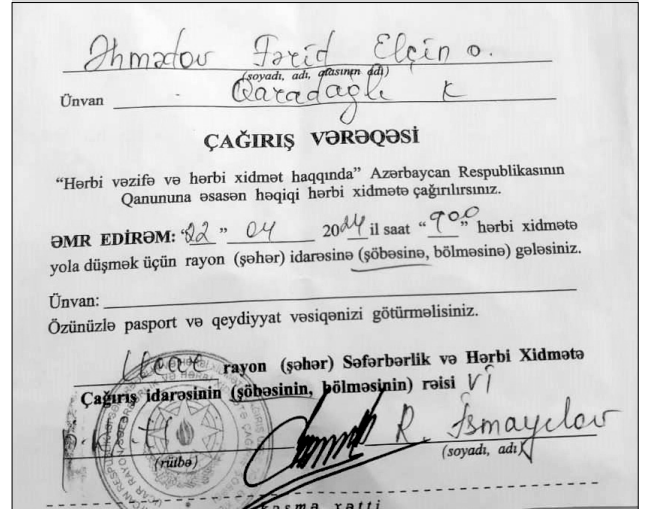 Əhmədov Fərid Elçin o.
(soyadı, adı, atasının adı)
Ünvan Qaradağlı k
ÇAĞIRIŞ VƏRƏQƏSİ
“Hərbi vəzifə və hərbi xidmət haqqında” Azərbaycan Respublikasının
Qanununa əsasən həqiqi hərbi xidmətə çağırılırsınız.
ƏMR EDİRƏM: “22” 04 2024 il saat “900” hərbi xidmətə
yola düşmək üçün rayon (şəhər) idarəsinə (şöbəsinə, bölməsinə) gələsiniz.
Ünvan:
Özünüzlə pasport və qeydiyyat vəsiqənizi götürməlisiniz.
Ucar rayon (şəhər) Səfərbərlik və Hərbi Xidmətə
Çağırış idarəsinin (şöbəsinin, bölməsinin) rəisi
R. İsmayılov
(rütbə) (soyadı, adı)
kəsmə xətti